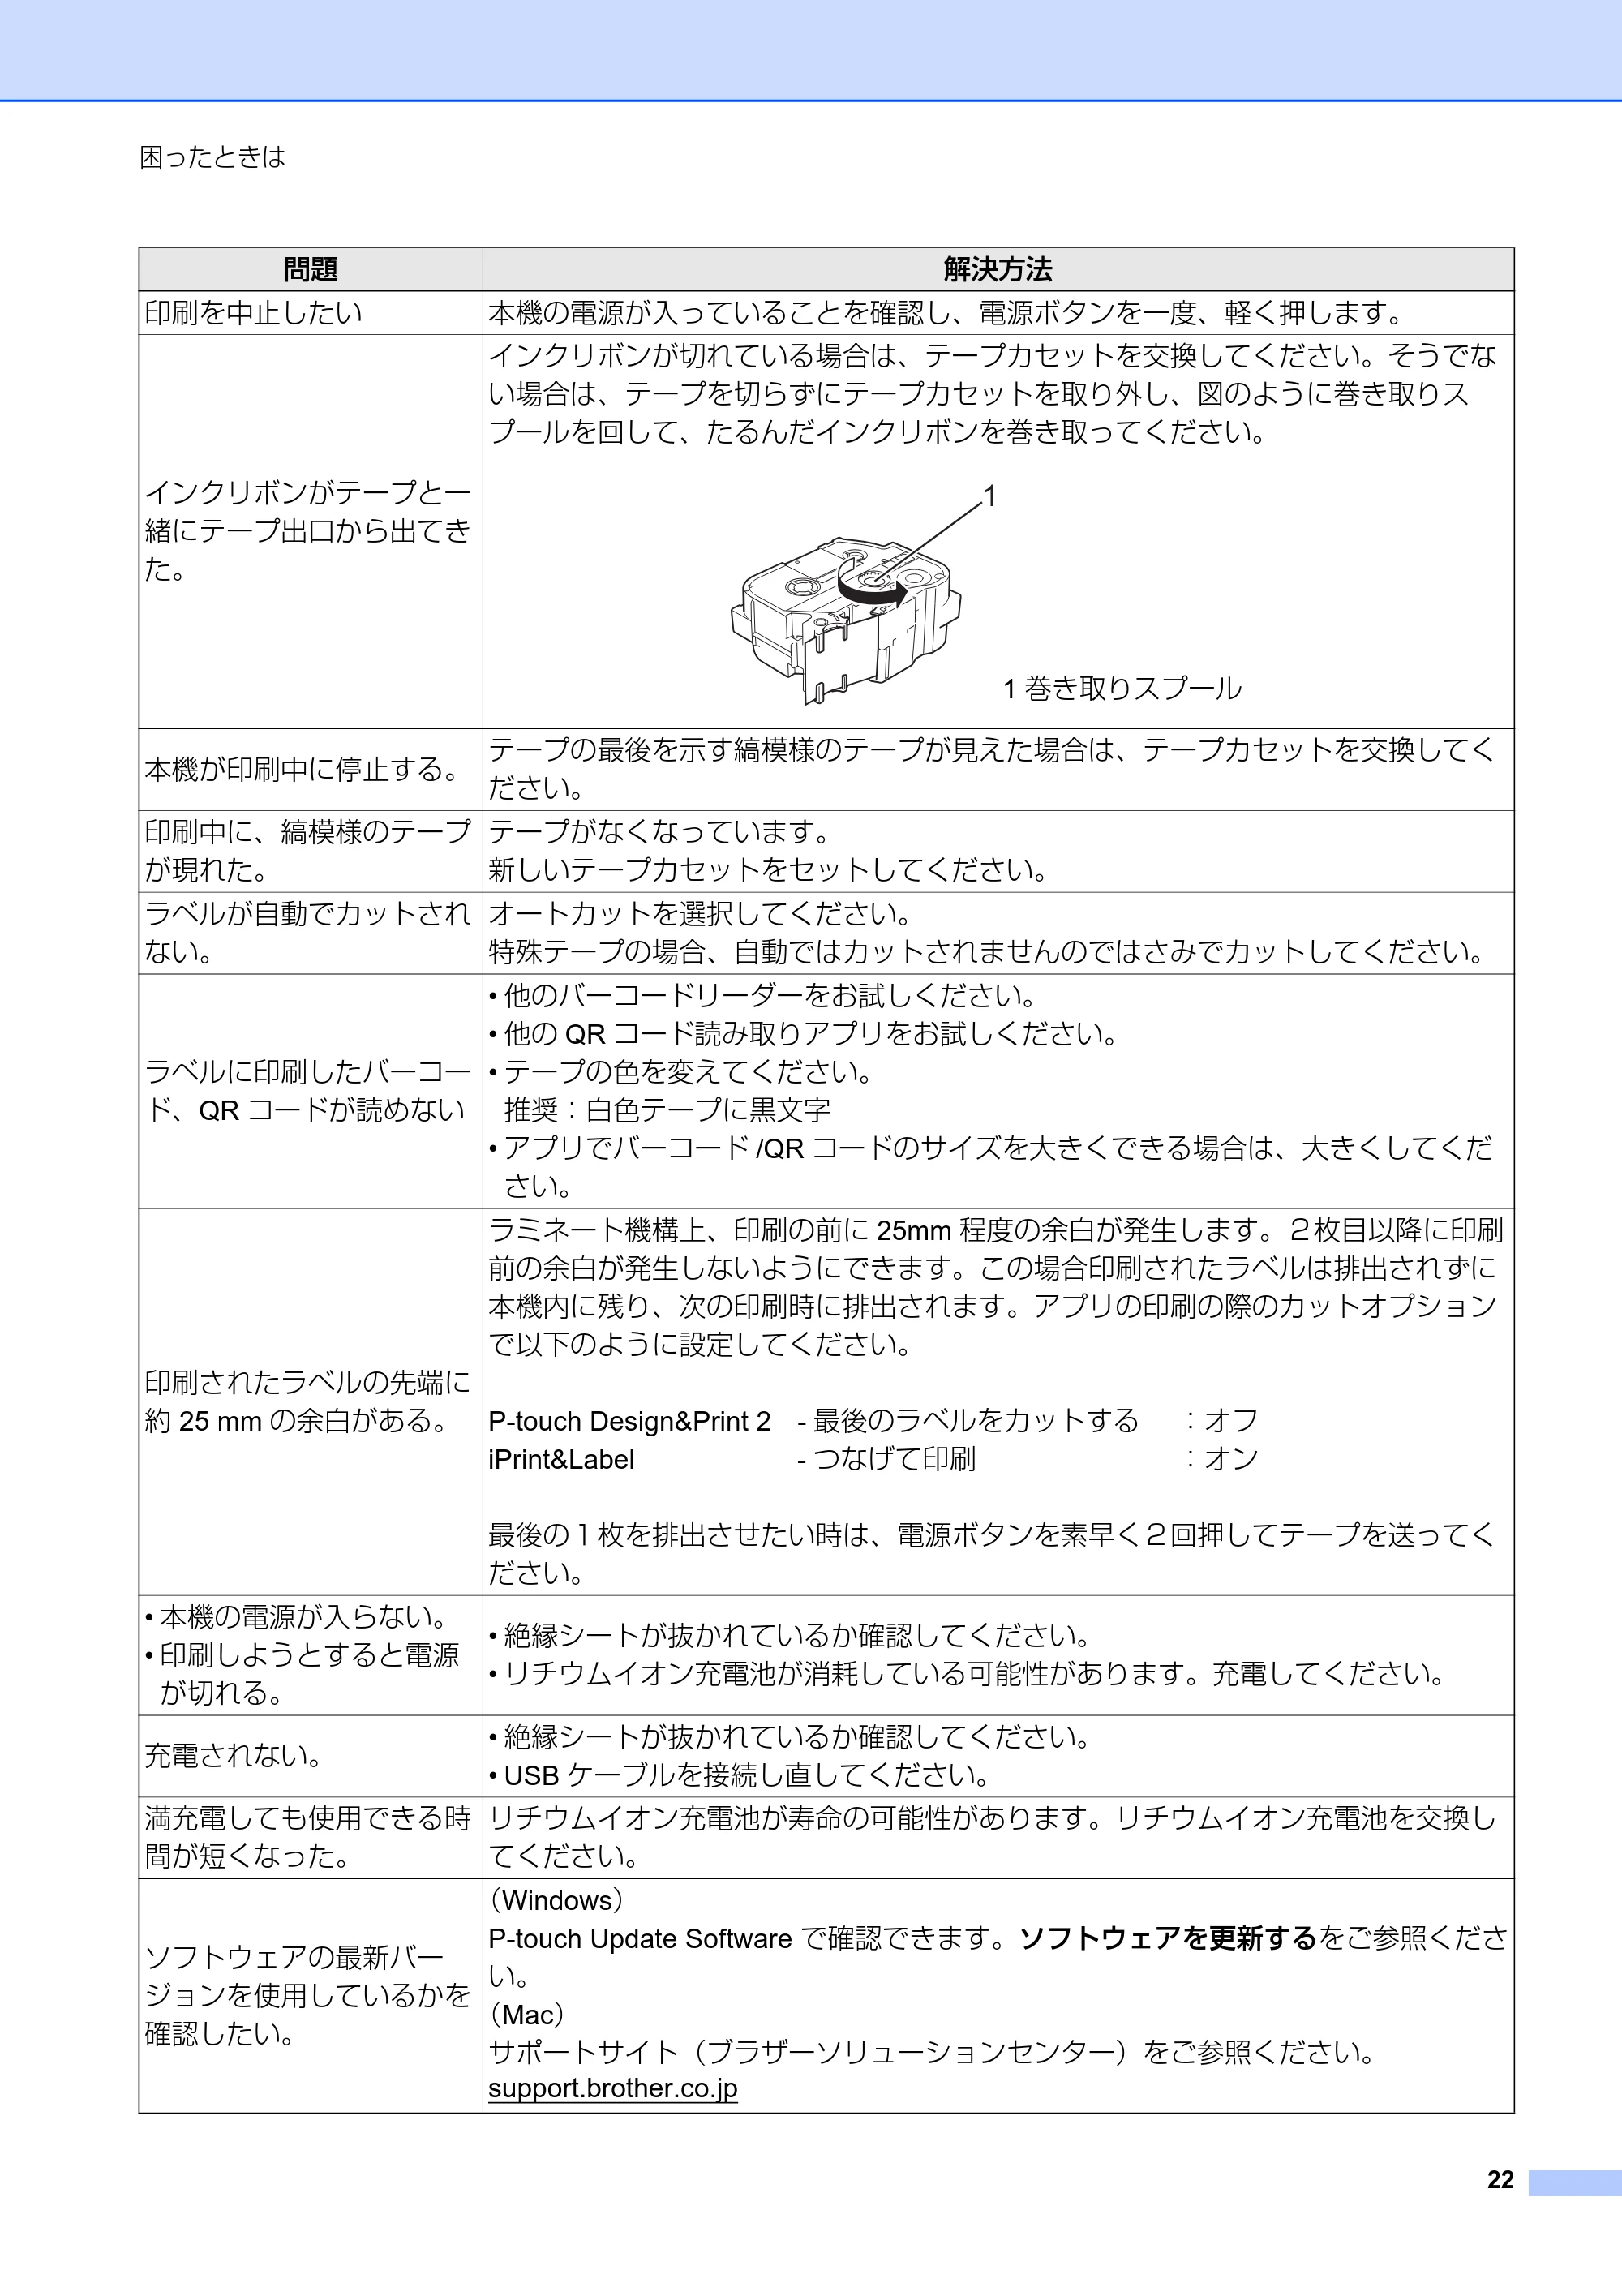 困ったときは
問題
解決方法
印刷を中止したい
本機の電源が入っていることを確認し、電源ボタンを一度、軽く押します。
インクリボンがテープと一
緒にテープ出口から出てき
た。
インクリボンが切れている場合は、テープカセットを交換してください。そうでな
い場合は、テープを切らずにテープカセットを取り外し、図のように巻き取りス
プールを回して、たるんだインクリボンを巻き取ってください。
1
1 巻き取りスプール
本機が印刷中に停止する。
テープの最後を示す縞模様のテープが見えた場合は、テープカセットを交換してく
ださい。
印刷中に、縞模様のテープ
が現れた。
テープがなくなっています。
新しいテープカセットをセットしてください。
ラベルが自動でカットされ
ない。
オートカットを選択してください。
特殊テープの場合、自動ではカットされませんのではさみでカットしてください。
ラベルに印刷したバーコー
ド、QR コードが読めない
• 他のバーコードリーダーをお試しください。
• 他の QR コード読み取りアプリをお試しください。
• テープの色を変えてください。
推奨：白色テープに黒文字
• アプリでバーコード /QR コードのサイズを大きくできる場合は、大きくしてくだ
さい。
印刷されたラベルの先端に
約 25 mm の余白がある。
ラミネート機構上、印刷の前に 25mm 程度の余白が発生します。２枚目以降に印刷
前の余白が発生しないようにできます。この場合印刷されたラベルは排出されずに
本機内に残り、次の印刷時に排出されます。アプリの印刷の際のカットオプション
で以下のように設定してください。
P-touch Design&Print 2 - 最後のラベルをカットする ：オフ
iPrint&Label - つなげて印刷 ：オン
最後の１枚を排出させたい時は、電源ボタンを素早く２回押してテープを送ってく
ださい。
• 本機の電源が入らない。
• 印刷しようとすると電源
が切れる。
• 絶縁シートが抜かれているか確認してください。
• リチウムイオン充電池が消耗している可能性があります。充電してください。
充電されない。
• 絶縁シートが抜かれているか確認してください。
• USB ケーブルを接続し直してください。
満充電しても使用できる時
間が短くなった。
リチウムイオン充電池が寿命の可能性があります。リチウムイオン充電池を交換し
てください。
ソフトウェアの最新バー
ジョンを使用しているかを
確認したい。
（Windows）
P-touch Update Software で確認できます。ソフトウェアを更新するをご参照くださ
い。
（Mac）
サポートサイト（ブラザーソリューションセンター）をご参照ください。
support.brother.co.jp
22